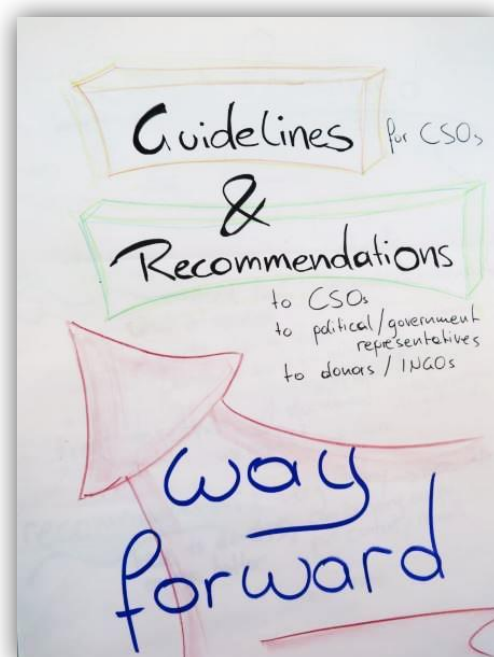 Guidelines for CSOs
&
Recommendations
to CSOs
to political/government
representatives
to donors / INGOs
way
forward